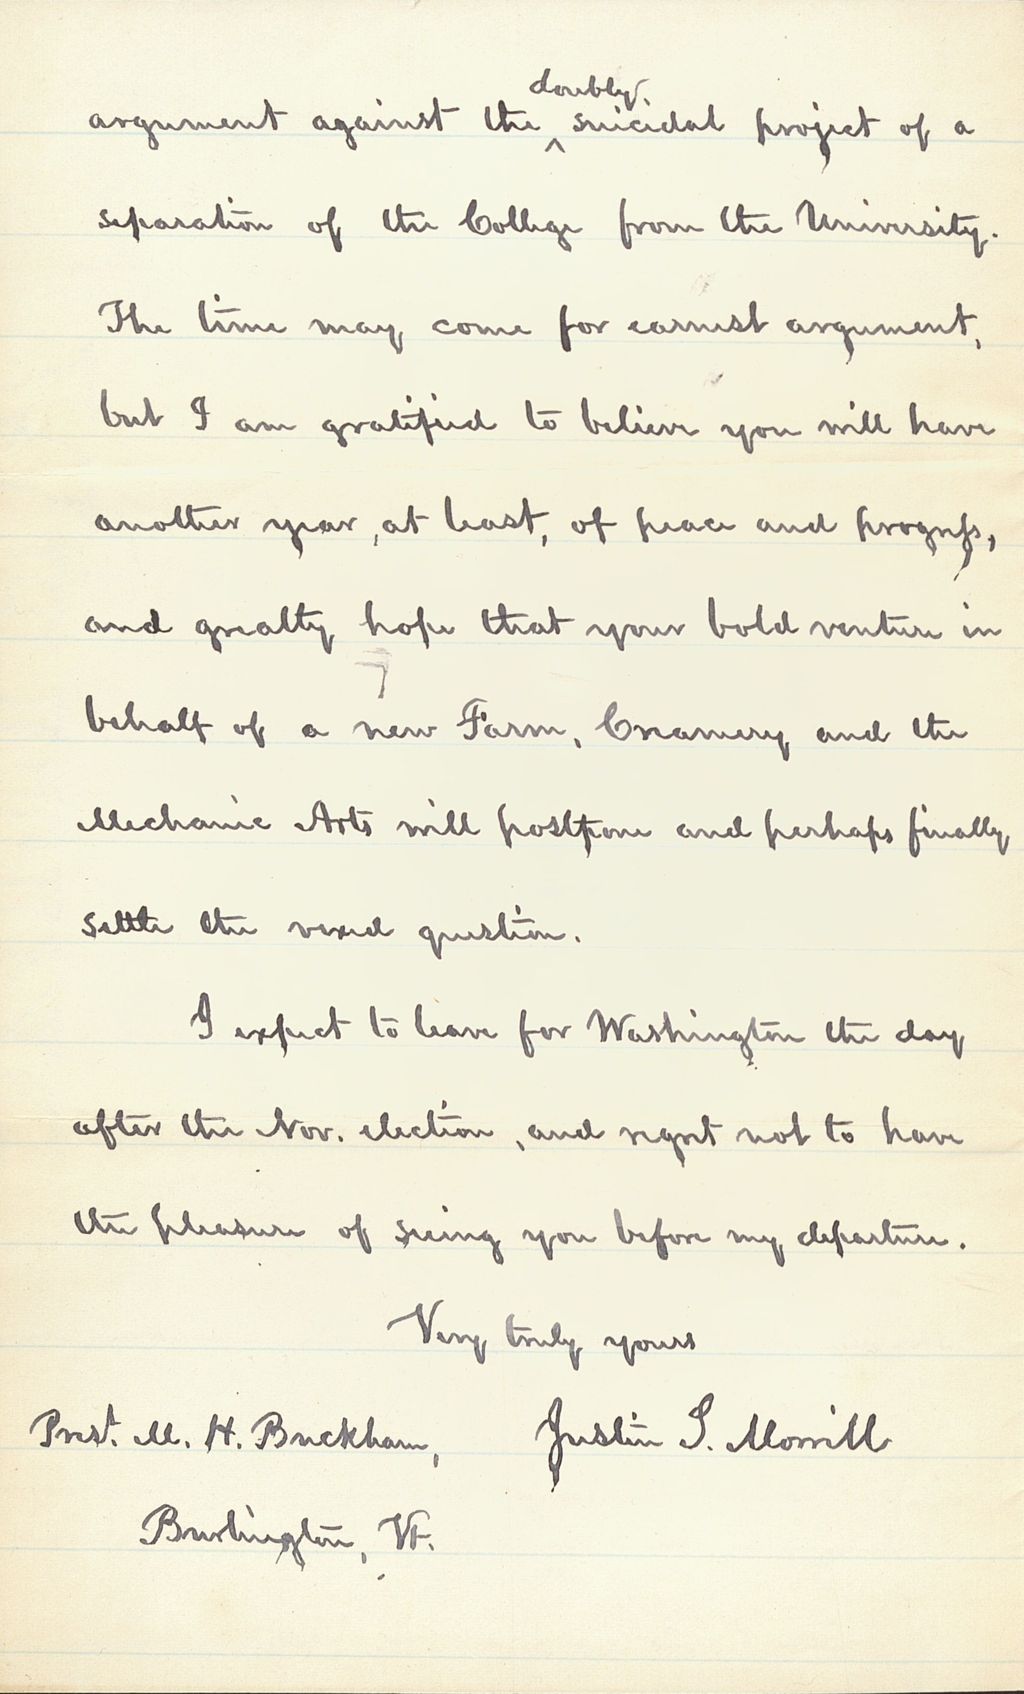 argument against the ^doubly suicidal project of a
separation of the College from the University.
The time may come for earnest argument,
but I am gratified to believe you will have
another year, at least, of peace and progress,
and greatly hope that your bold venture in
behalf of a new Farm, Creamery and the
Mechanic Arts will postpone and perhaps finally
settle the vexed question.
I expect to leave for Washington the day
after the Nov. election, and regret not to have
the pleasure of seeing you before my departure.
Very truly yours
Justin S. Morrill
Prest. M. H. Buckham,
Burlington, Vt.